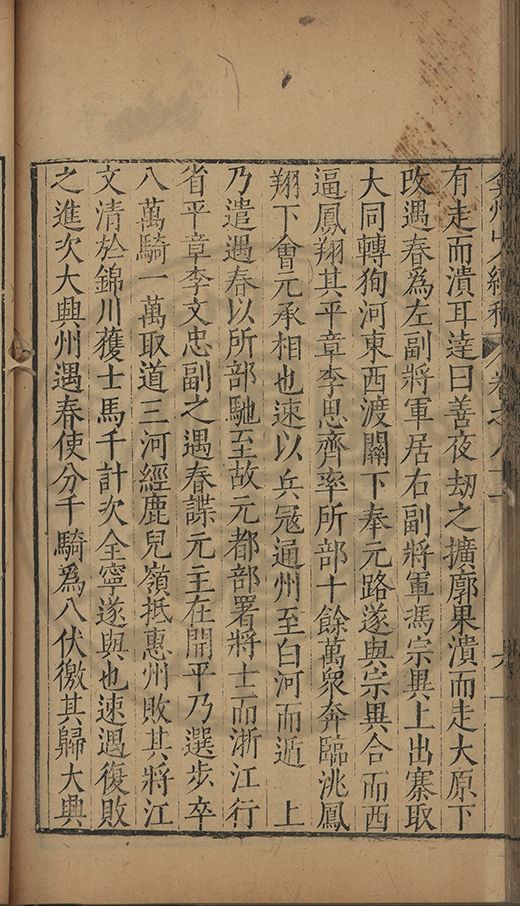 弇州山人續稿 卷之八十
有走而潰耳達曰善夜刼之擴廓果潰而走大原下
改遇春爲左副將軍居右副將軍馮宗異上出寨取
大同轉狥河東西渡關下奉元路遂與宗異合而西
逼鳳翔其平章李思齊率所部十餘萬衆奔臨洮鳳
翔下會元丞相也速以兵冦通州至白河而遁 上
乃遣遇春以所部馳至故元都部署將士而浙江行
省平章李文忠副之遇春諜元主在開平乃選步卒
八萬騎一萬取道三河經鹿兒嶺抵惠州敗其將江
文清於錦川獲士馬千計次全寧遂與也速遇復敗
之進次大興州遇春使分千騎爲八伏徼其歸大興